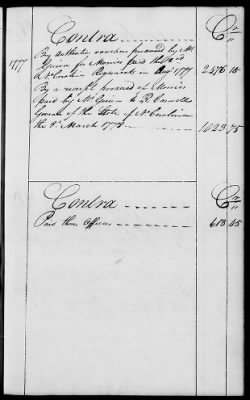 Contra Cr
By authentic vouchers produced by Mr
Green for Monies paid the 2nd
1777 & N Carolina Regiments in Augt 1777 2476 18
By a receipt produced of Monies
paid by Mr Green to R Caswell
Governor of the State of N Carolina
the 8th March 1778 1023 75
Contra Cr
Paid them Officers 618 45